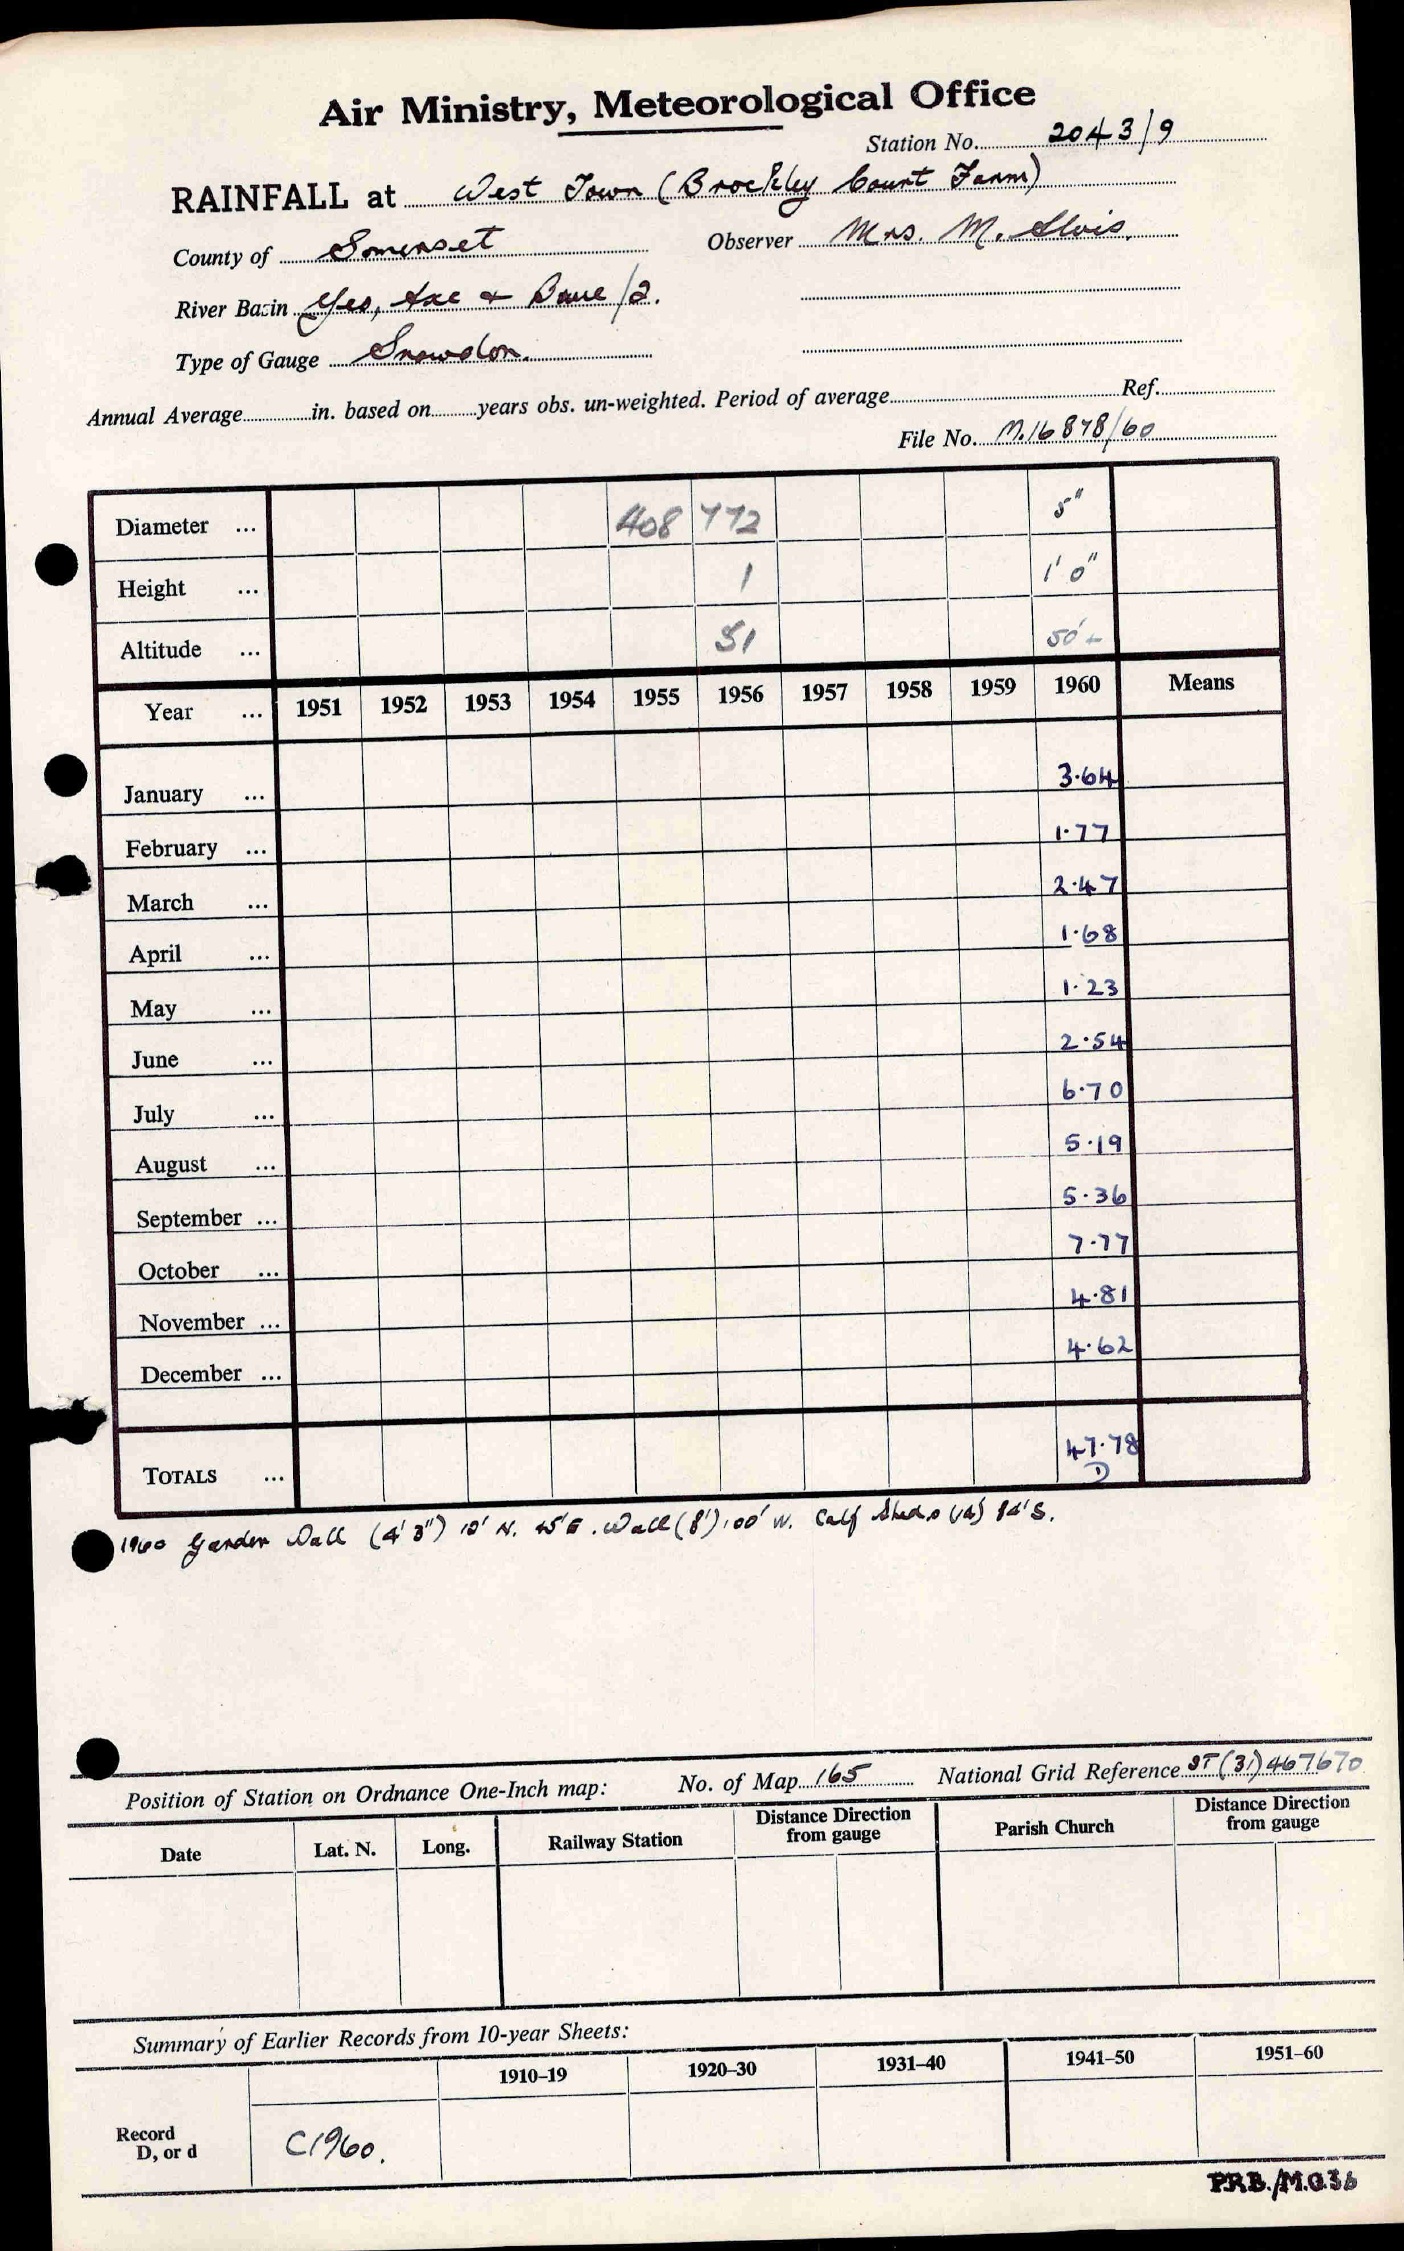 Air Ministry, Meteorological Office
Station No. 2043/9
RAINFALL at West Town (Brockley Court Farm)
County of Somerset Observer Mrs. M. Alvis.
River Basin Yeo, Axe & Brue /2.
Type of Gauge Snowdon.
Annual Average in. based on years obs. un-weighted. Period of average Ref.
File No. M.16878/60
Diameter ... 408 772 5"
Height ... 1 1' 0"
Altitude ... 51 50'±
Year ... 1951 1952 1953 1954 1955 1956 1957 1958 1959 1960 Means
January ... 3.64
February ... 1.77
March ... 2.47
April ... 1.68
May ... 1.23
June ... 2.54
July ... 6.70
August ... 5.19
September ... 5.36
October ... 7.77
November ... 4.81
December ... 4.62
TOTALS ... 47.78
D
1960 Garden Wall (4' 3") 10' N. 45' E. Wall (8') 100' W. Calf Sheds (12') 84' S.
Position of Station on Ordnance One-Inch map: No. of Map 165 National Grid Reference ST (31) 467670
Date Lat. N. Long. Railway Station Distance Direction from gauge Parish Church Distance Direction from gauge
Summary of Earlier Records from 10-year Sheets:
1910–19 1920–30 1931–40 1941–50 1951–60
Record
D, or d C1960.
P.R.B./M.O.36